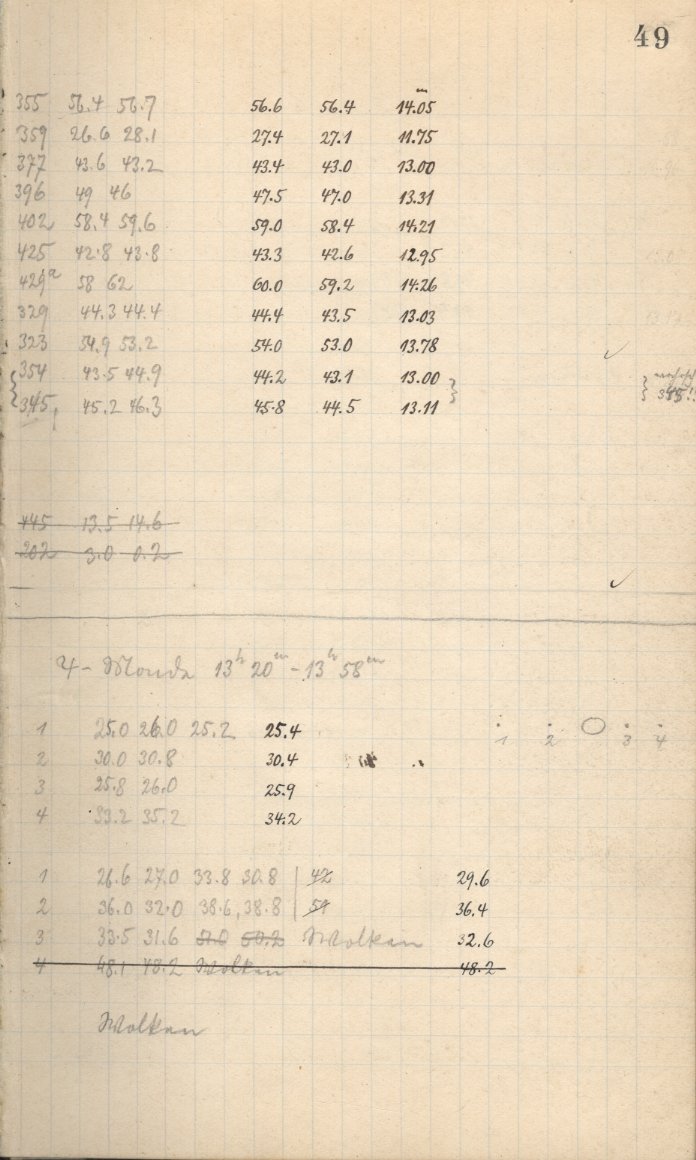 49
355 56.4 56.7 56.6 56.4 14.05
359 26.6 28.1 27.4 27.1 11.75
377 43.6 43.2 43.4 43.0 13.00
396 49 46 47.5 47.0 13.31
402 58.4 59.6 59.0 58.4 14.21
425 42.8 43.8 43.3 42.6 12.95
429a 58 62 60.0 59.2 14.26
329 44.3 44.4 44.4 43.5 13.03
323 54.9 53.2 54.0 53.0 13.78
354 43.5 44.9 44.2 43.1 13.00
345 45.2 46.3 45.8 44.5 13.11 345!!
445 13.5 14.6
202 3.0 0.2
♃-Monde 13h 20m - 13h 58m
1 25.0 26.0 25.2 25.4
2 30.0 30.8 30.4
3 25.8 26.0 25.9
4 33.2 35.2 34.2
1 2 3 4
1 26.6 27.0 33.8 30.8 | 42 29.6
2 36.0 32.0 38.6, 38.8 | 59 36.4
3 33.5 31.6 50.2 Wolken 32.6
4 48.1 48.2 Wolken 48.2
Wolken